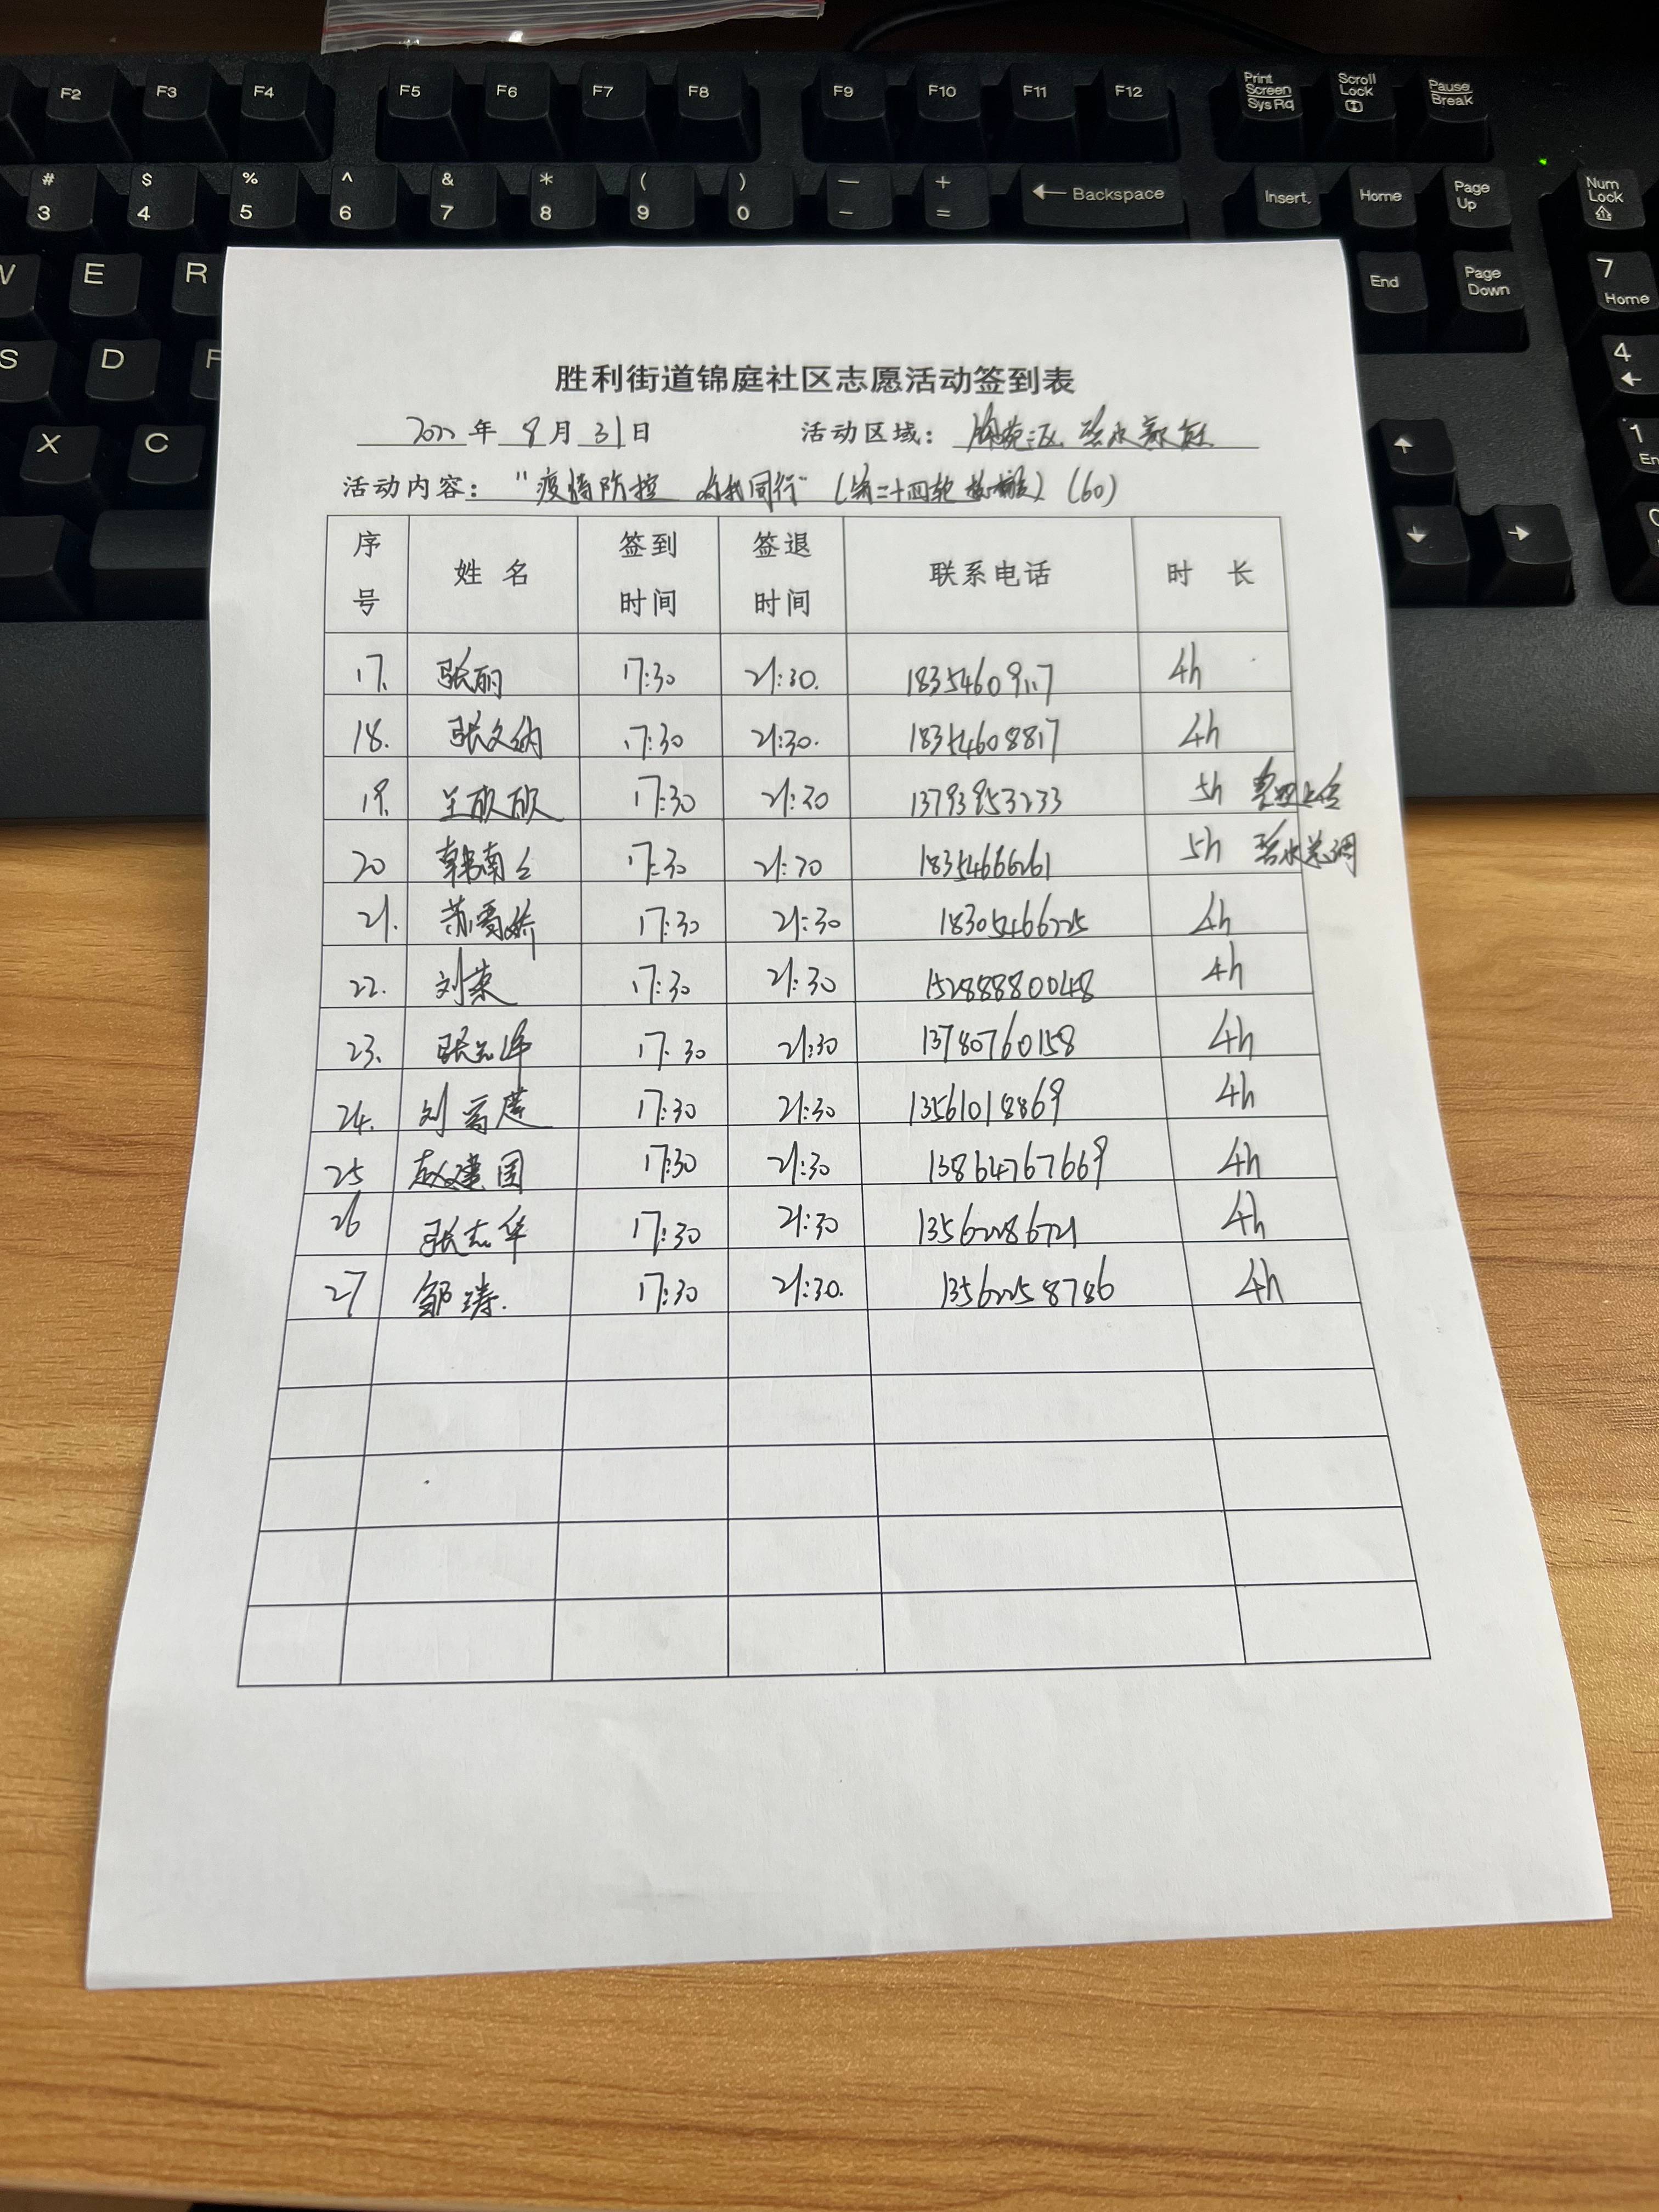 F2 F3 F4 F5 F6 F7 F8 F9 F10 F11 F12 Print Screen SysRq Scroll Lock Pause Break
# 3 $ 4 % 5 ^ 6 & 7 * 8 ( 9 ) 0 — - + = ← Backspace Insert Home Page Up Num Lock
W E R End Page Down 7 Home
S D F 4 ←
X C ↑ 1 En
↓ → 0
胜利街道锦庭社区志愿活动签到表
2022年8月31日 活动区域:
活动内容:"疫情防控 你我同行"(第二十四轮)(60)
序号 姓名 签到时间 签退时间 联系电话 时长
17. 张丽 17:30 21:30. 18354609117 4h
18. 张文纳 17:30 21:30. 18354608817 4h
19. 王欣欣 17:30 21:30 13793953233 5h
20 韩南 17:30 21:30 18354666261 5h
21. 苏雪娇 17:30 21:30 18305466225 4h
22. 刘荣 17:30 21:30 15288880048 4h
23. 张 17:30 21:30 13780760158 4h
24. 刘富莲 17:30 21:30 13561018869 4h
25 赵建国 17:30 21:30 13864767669 4h
26 张志华 17:30 21:30 13562286721 4h
27 邹涛. 17:30 21:30. 13562258786 4h